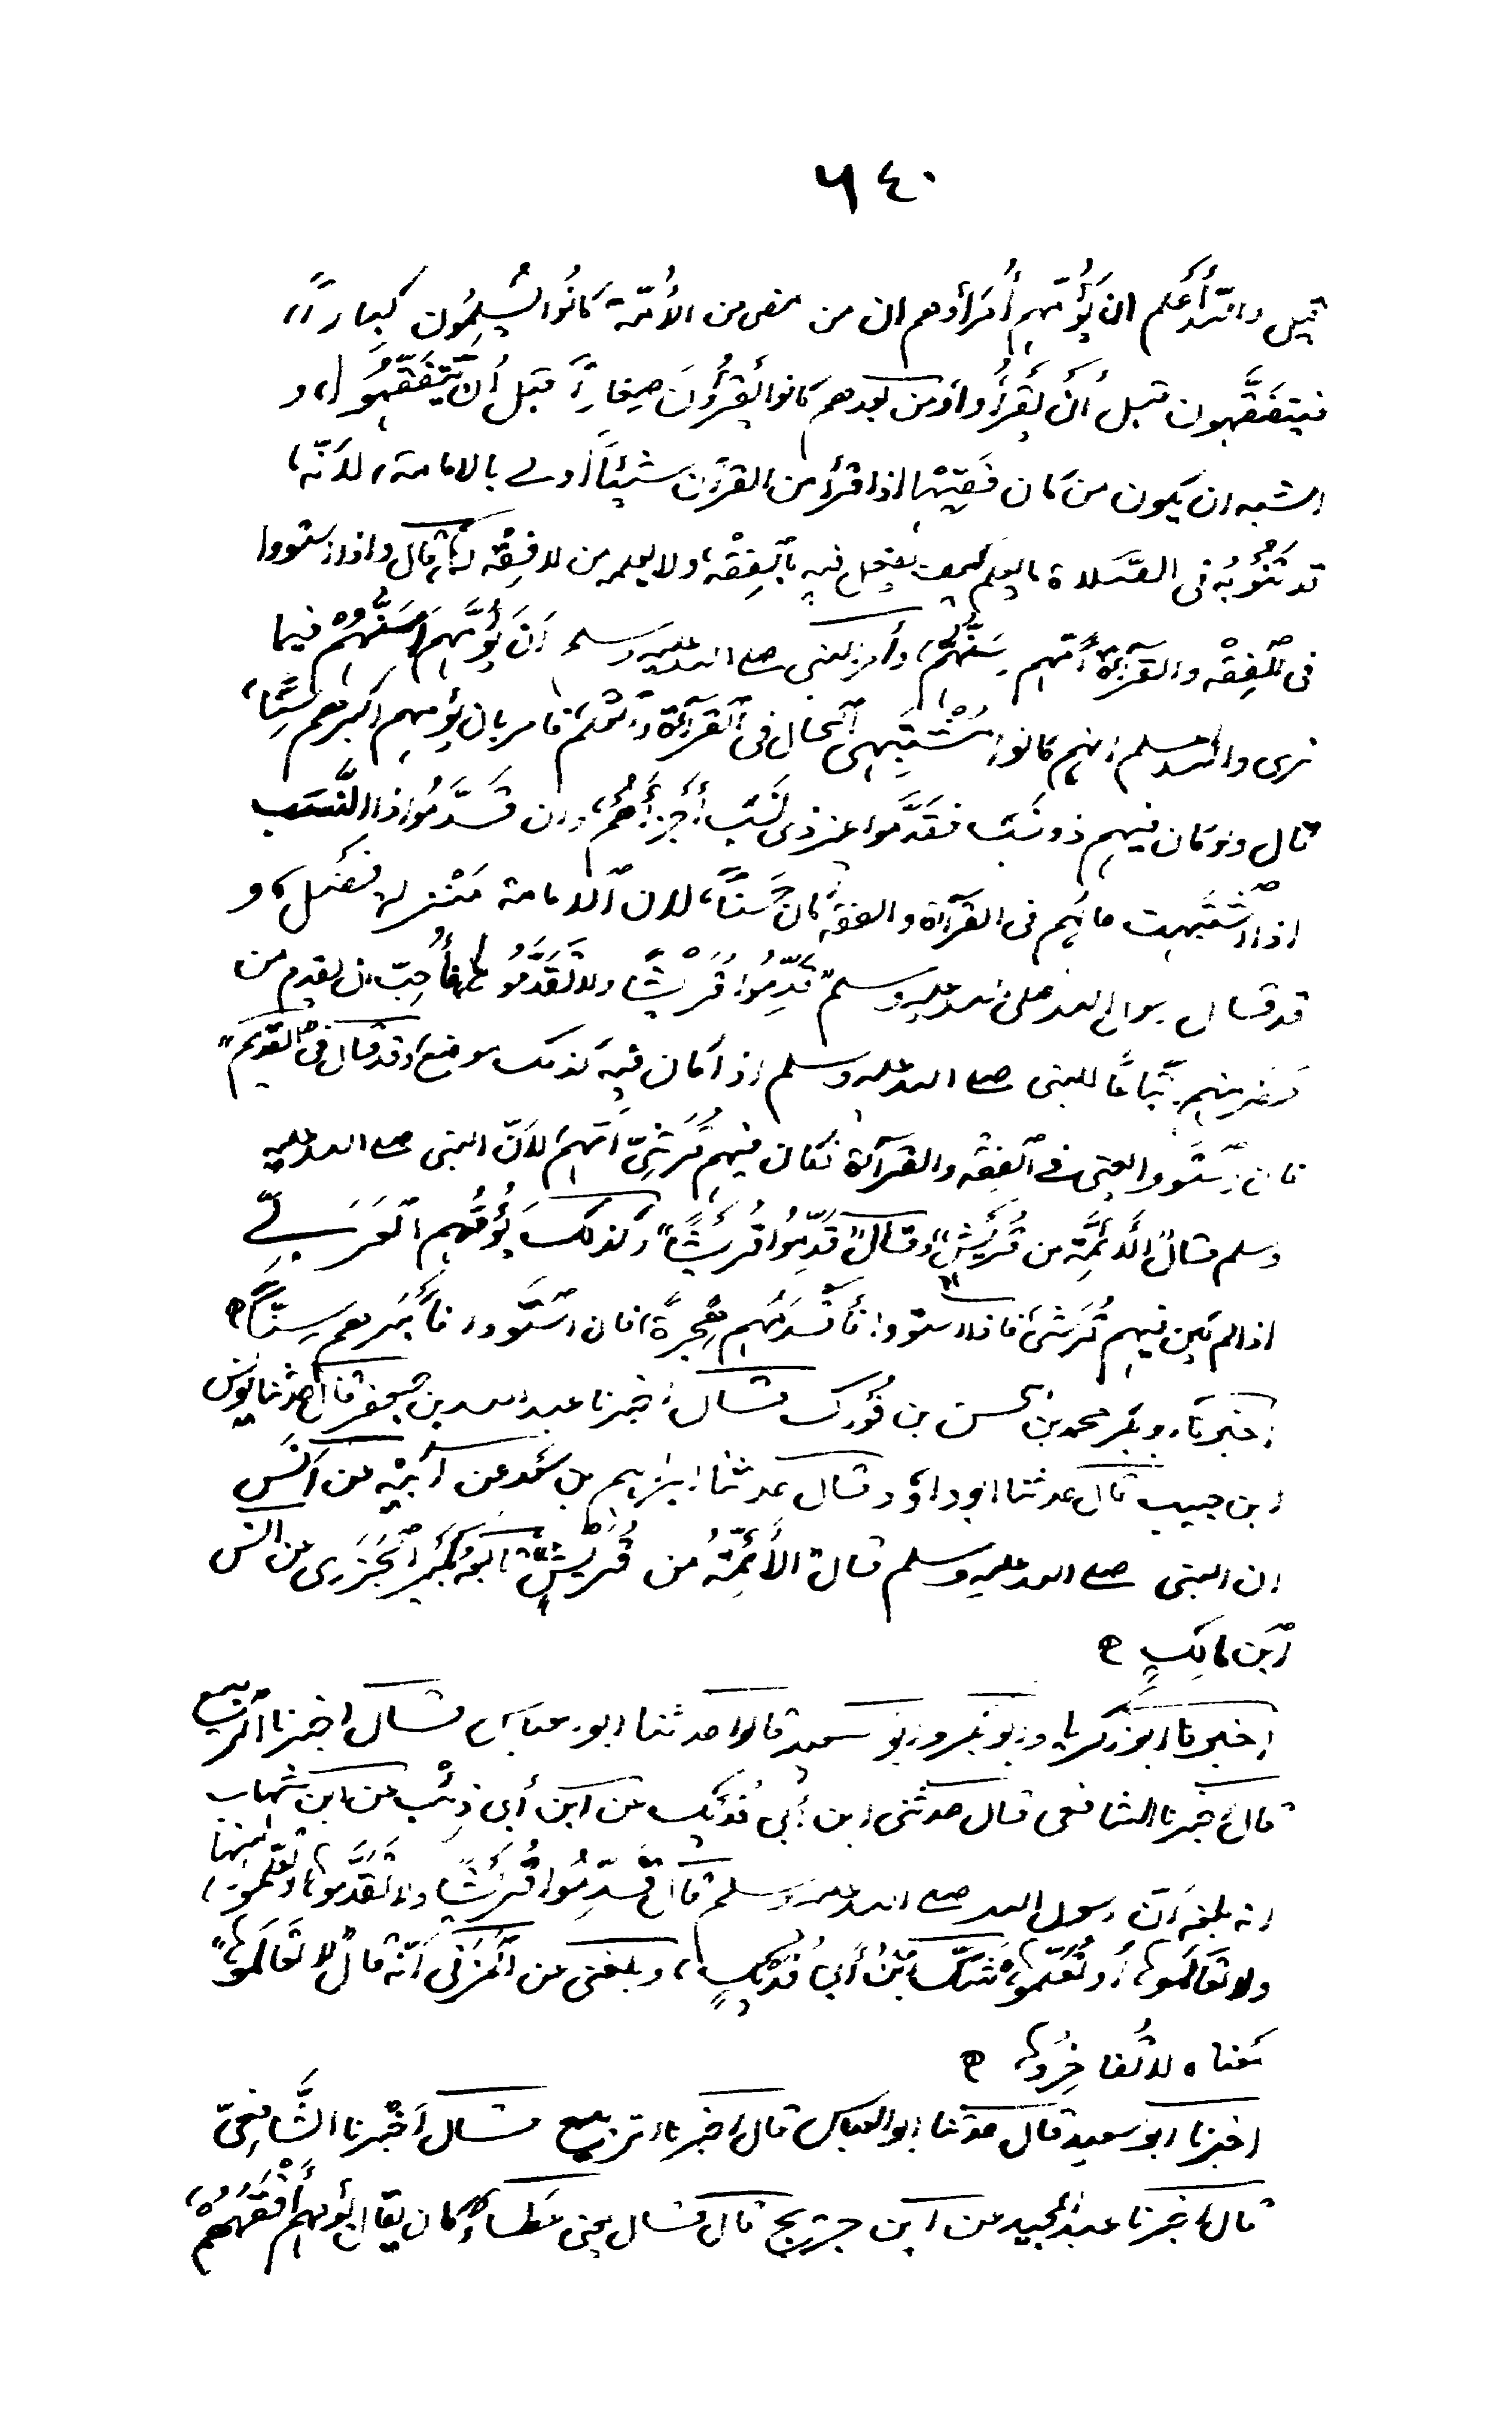 ٦٤٠
قيل والله أعلم ان يؤمهم أقرأهم ان من مضى من الأئمة كانوا يسلمون كبارًا،
فيتفقهون قبل أن يقرأوا ومن بعدهم كانوا يقرؤون صغارًا قبل أن يتفقهوا، و
اشبه ان يكون من كان فقيها اذا قرأ من القرآن شيئًا أولى بالامامة، لأنه
قد تنوبه فى الصلاة ما يعلم كيف يفعل فيه بالفقه، ولا يعلمه من لا فقه له، قال واذا استووا
فى الفقه والقرآءة أمهم أسنهم، وأمر النبى صلى الله عليه وسلم أن يؤمهم أسنهم فيما
نرى والله اعلم انهم كانوا مشتبهى الحال فى القرآءة والعلم فأمر بان يؤمهم اكبرهم سنًا،
قال ولو كان فيهم ذو نسب فقدموا غير ذى نسب أجزأهم، وان قدموا ذا النسب
اذا اشتبهت حالهم فى القرآءة والفقه كان حسنًا، لان الامامة منزلة فضل، و
قد قال رسول الله صلى الله عليه وسلم "قدموا قريشًا ولا تقدموها" فأحب ان يقدم من
حضر منهم اتباعًا للنبى صلى الله عليه وسلم اذا كان فيه لذلك موضع، وقد قال فى القديم"
فان استووا يعنى فى الفقه والقرآءة فكان فيهم قرشى أمهم لأن النبى صلى الله عليه
وسلم قال "الأئمة من قريش" وقال "قدموا قريشًا" وكذلك يؤمهم العربى
اذا لم يكن فيهم قرشى فاذا استووا فأقدمهم هجرة، فان استووا فأكبرهم سنًا
اخبرنا ابو بكر محمد بن الحسن بن فورك قال اخبرنا عبد الله بن جعفر قال حدثنا يونس
ابن حبيب قال حدثنا ابو داود قال حدثنا ابراهيم بن سعد عن أبيه عن أنس
ان النبى صلى الله عليه وسلم قال "الأئمة من قريش" تابعه بكير الجزرى عن انس
ابن مالك
اخبرنا ابو زكريا وابو بكر وابو سعيد قالوا حدثنا ابو العباس قال اخبرنا الربيع
قال اخبرنا الشافعى قال حدثنى ابن أبى فديك عن ابن أبى ذئب عن ابن شهاب
انه بلغه أن رسول الله صلى الله عليه وسلم قال "قدموا قريشًا ولا تقدموها، وتعلموا منها
ولا تعالموها، أو تعلموها" شك ابن أبى فديك، وبلغنى عن المزنى أنه قال "لا تعالموها"
معناه لا تفاخروها
اخبرنا ابو سعيد قال حدثنا ابو العباس قال اخبرنا الربيع قال أخبرنا الشافعى
قال اخبرنا عبد المجيد عن ابن جريج قال قال يعنى عطاء كان يقال يؤمهم أفقههم،